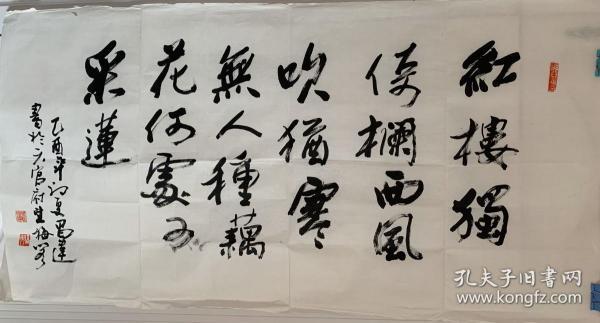 紅樓獨
倚欄西風
吹猶寒
無人種藕
花何處可
采蓮
乙酉年
書於
孔夫子旧书网
www.kongfz.com